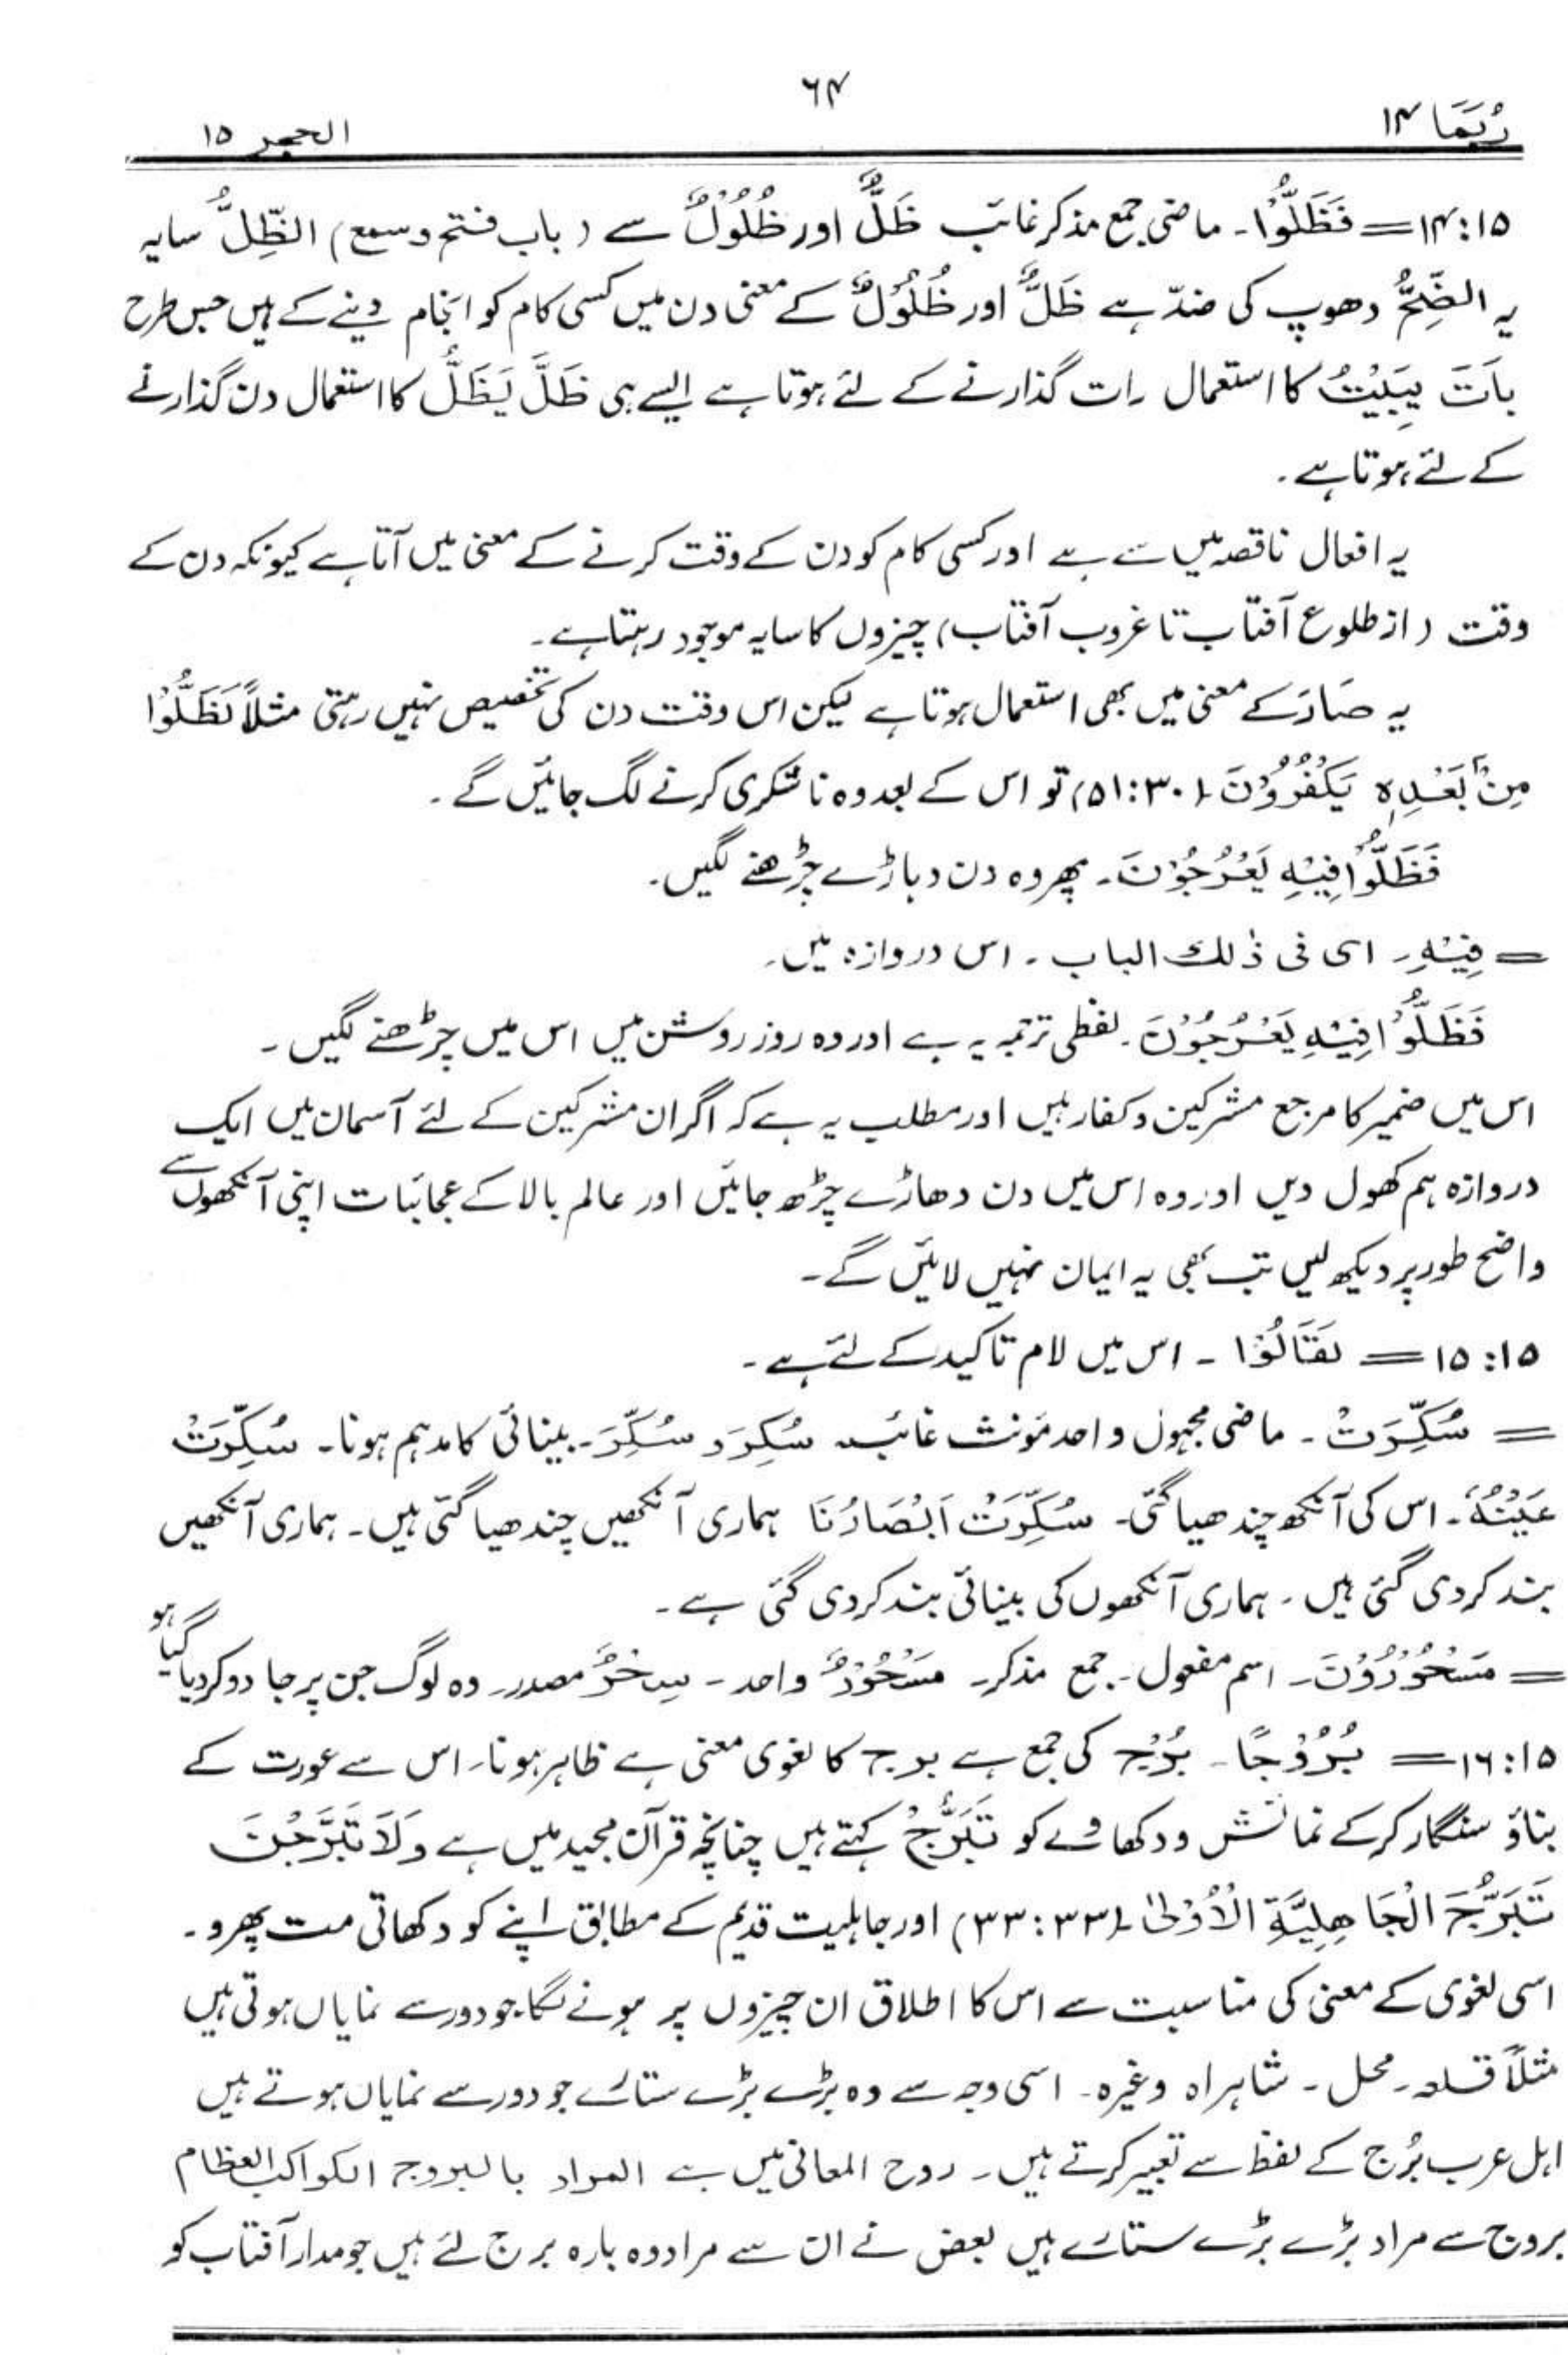 ۶۴
رُبَمَا ۱۴
الحجر ۱۵
۱۴:۱۵ = فَظَلُّوْا۔ ماضی جمع مذکر غائب ظَلٌّ اور ظُلُوْلٌ سے (باب فتح و سمع) الظِّلُّ سایہ
یہ الضِّحُّ دھوپ کی ضدّ ہے ظَلٌّ اور ظُلُوْلٌ کے معنی دن میں کسی کام کو انجام دینے کے ہیں جس طرح
بَاتَ يَبِيْتُ کا استعمال رات گذارنے کے لئے ہوتا ہے ایسے ہی ظَلَّ يَظَلُّ کا استعمال دن گذارنے
کے لئے ہوتا ہے۔
یہ افعال ناقصہ میں سے ہے اور کسی کام کو دن کے وقت کرنے کے معنی میں آتا ہے کیونکہ دن کے
وقت (از طلوع آفتاب تا غروب آفتاب) چیزوں کا سایہ موجود رہتا ہے۔
یہ صَارَ کے معنی میں بھی استعمال ہوتا ہے لیکن اس وقت دن کی تخصیص نہیں رہتی مثلاً لَظَلُّوْا
مِنْۢ بَعْدِهٖ يَكْفُرُوْنَ (۵۱:۳۰) تو اس کے بعد وہ ناشکری کرنے لگ جائیں گے۔
فَظَلُّوْا فِيْهِ يَعْرُجُوْنَ۔ پھر وہ دن دہاڑے چڑھنے لگیں۔
= فِيْهِ۔ ای فی ذٰلك الباب۔ اس دروازہ میں۔
فَظَلُّوْا فِيْهِ يَعْرُجُوْنَ۔ لفظی ترجمہ یہ ہے اور وہ روز روشن میں اس میں چڑھنے لگیں۔
اس میں ضمیر کا مرجع مشرکین و کفار ہیں اور مطلب یہ ہے کہ اگر ان مشرکین کے لئے آسمان میں ایک
دروازہ ہم کھول دیں اور وہ اس میں دن دھاڑے چڑھ جائیں اور عالم بالا کے عجائبات اپنی آنکھوں سے
واضح طور پر دیکھ لیں تب بھی یہ ایمان نہیں لائیں گے۔
۱۵:۱۵ = لَقَالُوْا ۔ اس میں لام تاکید کے لئے ہے۔
= سُكِّرَتْ۔ ماضی مجہول واحد مؤنث غائب سُكِرَ و سُكِّرَ۔ بینائی کا مدہم ہونا۔ سُكِّرَتْ
عَيْنُهٗ۔ اس کی آنکھ چندھیا گئی۔ سُكِّرَتْ اَبْصَارُنَا ہماری آنکھیں چندھیا گئی ہیں۔ ہماری آنکھیں
بند کردی گئی ہیں۔ ہماری آنکھوں کی بینائی بند کردی گئی ہے۔
= مَسْحُوْرُوْنَ۔ اسم مفعول۔ جمع مذکر۔ مَسْحُوْرٌ واحد۔ سِحْرٌ مصدر۔ وہ لوگ جن پر جادو کردیا گیا ہو
۱۶:۱۵ = بُرُوْجًا۔ بُرْجٌ کی جمع ہے برج کا لغوی معنی ہے ظاہر ہونا۔ اس سے عورت کے
بناؤ سنگار کرکے نمائش و دکھاوے کو تَبَرُّجٌ کہتے ہیں چنانچہ قرآن مجید میں ہے وَلَا تَبَرَّجْنَ
تَبَرُّجَ الْجَاهِلِيَّةِ الْاُوْلٰى (۳۳:۳۳) اور جاہلیت قدیم کے مطابق اپنے کو دکھاتی مت پھرو۔
اسی لغوی کے معنی کی مناسبت سے اس کا اطلاق ان چیزوں پر ہونے لگا جو دور سے نمایاں ہوتی ہیں
مثلاً قلعہ۔ محل۔ شاہراہ وغیرہ۔ اسی وجہ سے وہ بڑے بڑے ستارے جو دور سے نمایاں ہوتے ہیں
اہل عرب بُرج کے لفظ سے تعبیر کرتے ہیں۔ روح المعانی میں ہے المراد بالبروج الكواكب العظام
بروج سے مراد بڑے بڑے ستارے ہیں بعض نے ان سے مراد وہ بارہ برج لئے ہیں جو مدار آفتاب کو